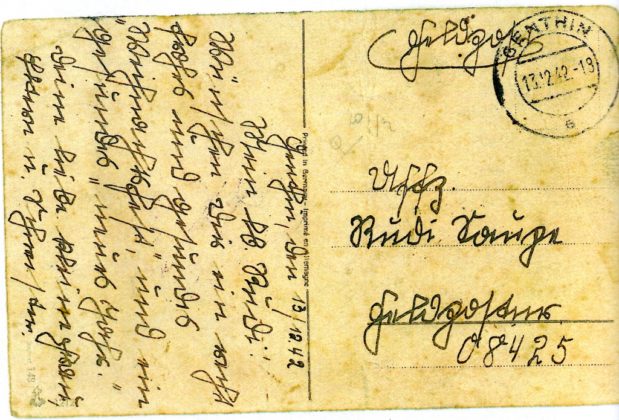 Genthin, den 13/12.42
Mein lb Rudi!
Wünschen Dir ein recht
frohes und gesundes
Weihnachtsfest, und ein
"gesundes" neues Jahr.
Deine liebe
u.
Printed in Germany. Imprimé en Allemagne
Feldpost
GENTHIN
13.12.42.-18
a
Uffz.
Rudi Lange
Feldpostnr.
08425